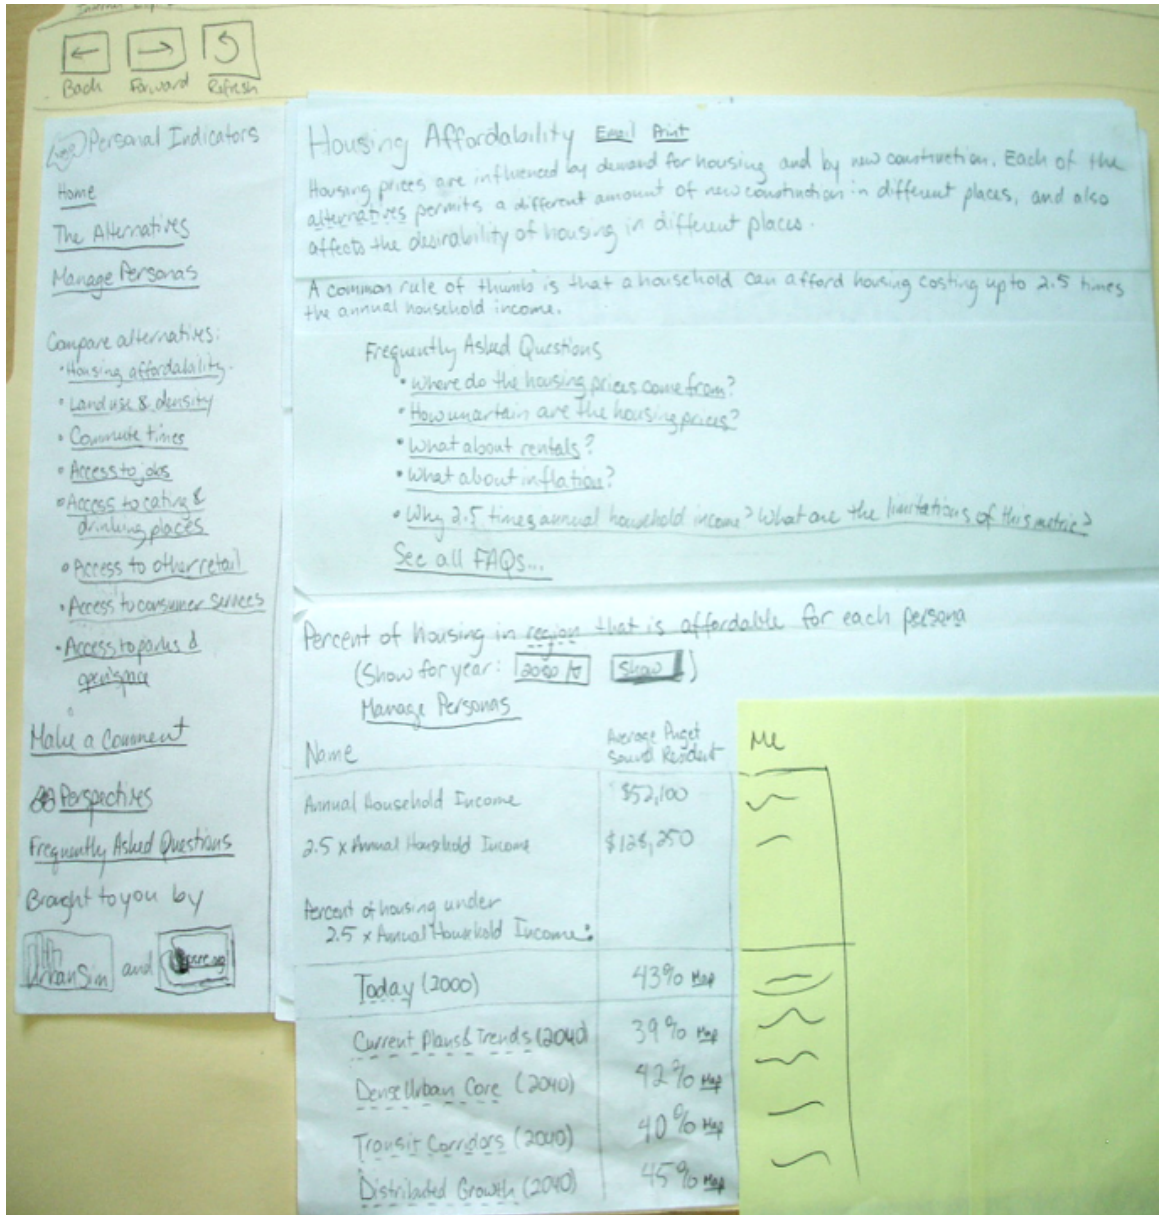 Back Forward Refresh
Personal Indicators
Home
The Alternatives
Manage Personas
Compare alternatives:
• Housing affordability
• Land use & density
• Commute times
• Access to jobs
• Access to eating &
drinking places
• Access to other retail
• Access to consumer services
• Access to parks &
open space
Make a Comment
Perspectives
Frequently Asked Questions
Brought to you by
UrbanSim and
Housing Affordability Email Print
Housing prices are influenced by demand for housing and by new construction. Each of the
alternatives permits a different amount of new construction in different places, and also
affects the desirability of housing in different places.
A common rule of thumb is that a household can afford housing costing up to 2.5 times
the annual household income.
Frequently Asked Questions
• Where do the housing prices come from?
• How uncertain are the housing prices?
• What about rentals?
• What about inflation?
• Why 2.5 times annual household income? What are the limitations of this metric?
See all FAQs...
Percent of housing in region that is affordable for each persona
(Show for year: Show)
Manage Personas
Name Average Puget Me
Sound Resident
Annual Household Income $52,100
2.5 x Annual Household Income $128,250
Percent of housing under
2.5 x Annual Household Income:
Today (2000) 43% Map
Current Plans & Trends (2040) 39% Map
Dense Urban Core (2040) 42% Map
Transit Corridors (2040) 40% Map
Distributed Growth (2040) 45% Map